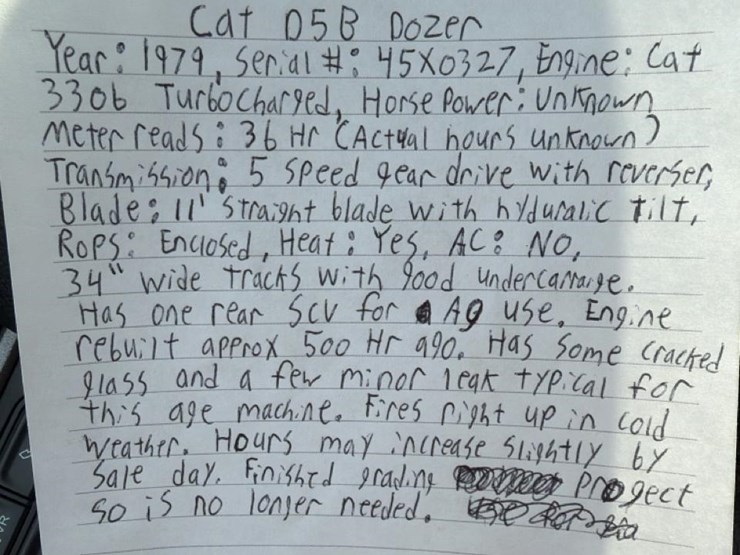 Cat D5B Dozer
Year: 1979, Serial #: 45X0327, Engine: Cat
3306 Turbocharged, Horse Power: Unknown
Meter reads: 36 Hr (Actual hours unknown)
Transmission: 5 speed gear drive with reverser,
Blade: 11' straight blade with hyduralic tilt,
Rops: Enclosed, Heat: Yes, AC: NO,
34" wide tracks with good undercarraige.
Has one rear SCV for Ag use. Engine
rebuilt approx 500 Hr ago. Has some cracked
glass and a few minor leak typical for
this age machine. Fires right up in cold
weather. Hours may increase slightly by
sale day. Finished grading progect
so is no longer needed.